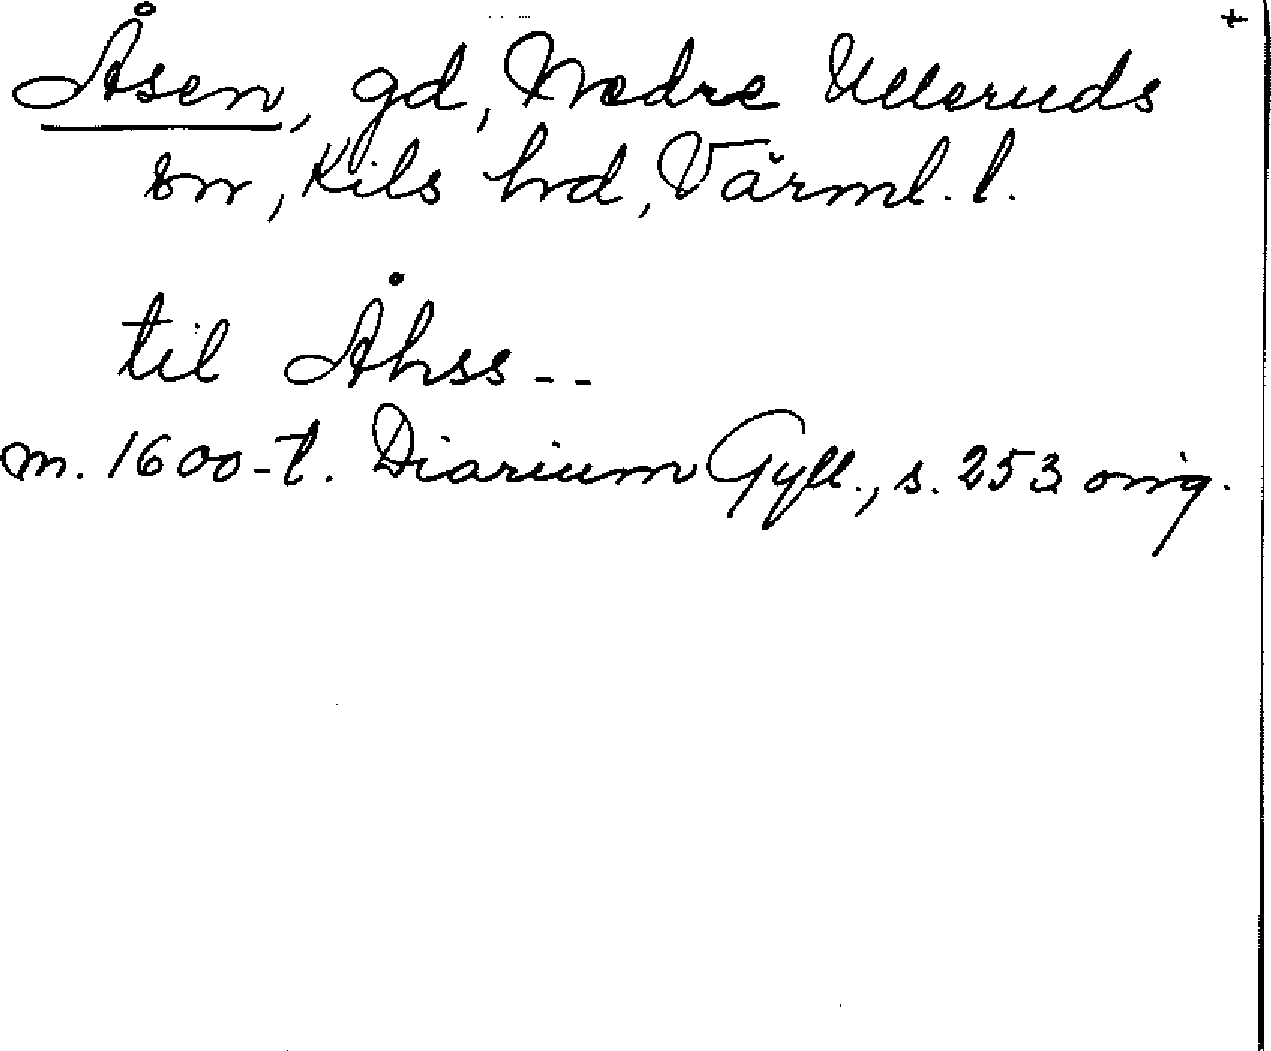 +
Åsen, gd, Nedre Ulleruds
sn, Kils hd, Värml. l.
til Åhss--
m. 1600-t. Diarium Gyll., s. 253 orig.